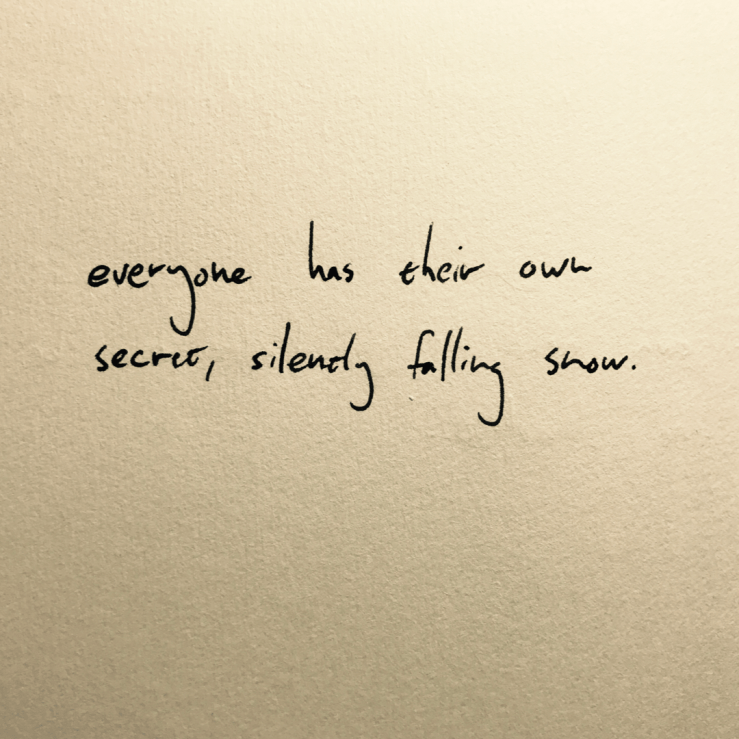 everyone has their own
secret, silently falling snow.